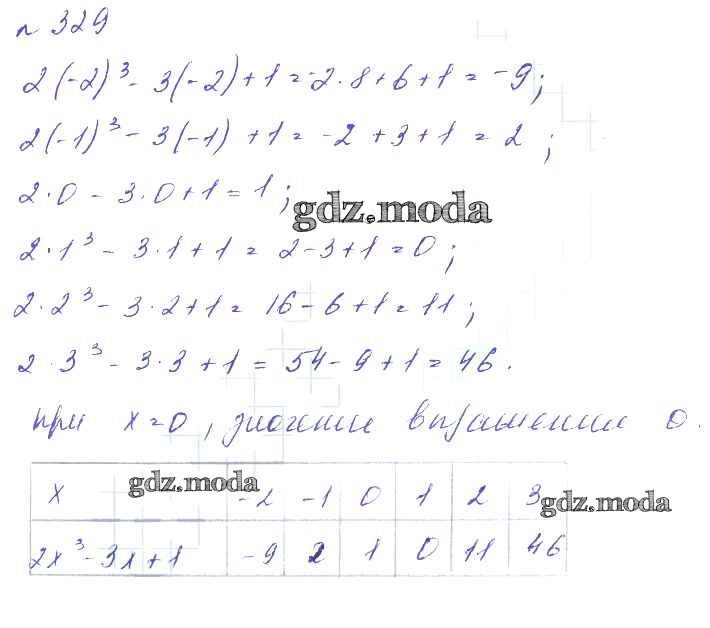 № 329
2(-2)³ - 3(-2) + 1 = -2·8 + 6 + 1 = -9;
2(-1)³ - 3(-1) + 1 = -2 + 3 + 1 = 2;
2·0 - 3·0 + 1 = 1;
gdz.moda
2·1³ - 3·1 + 1 = 2 - 3 + 1 = 0;
2·2³ - 3·2 + 1 = 16 - 6 + 1 = 11;
2·3³ - 3·3 + 1 = 54 - 9 + 1 = 46.
при x = 0, значение выражение 0.
x gdz.moda -2 -1 0 1 2 3 gdz.moda
2x³ - 3x + 1 -9 2 1 0 11 46